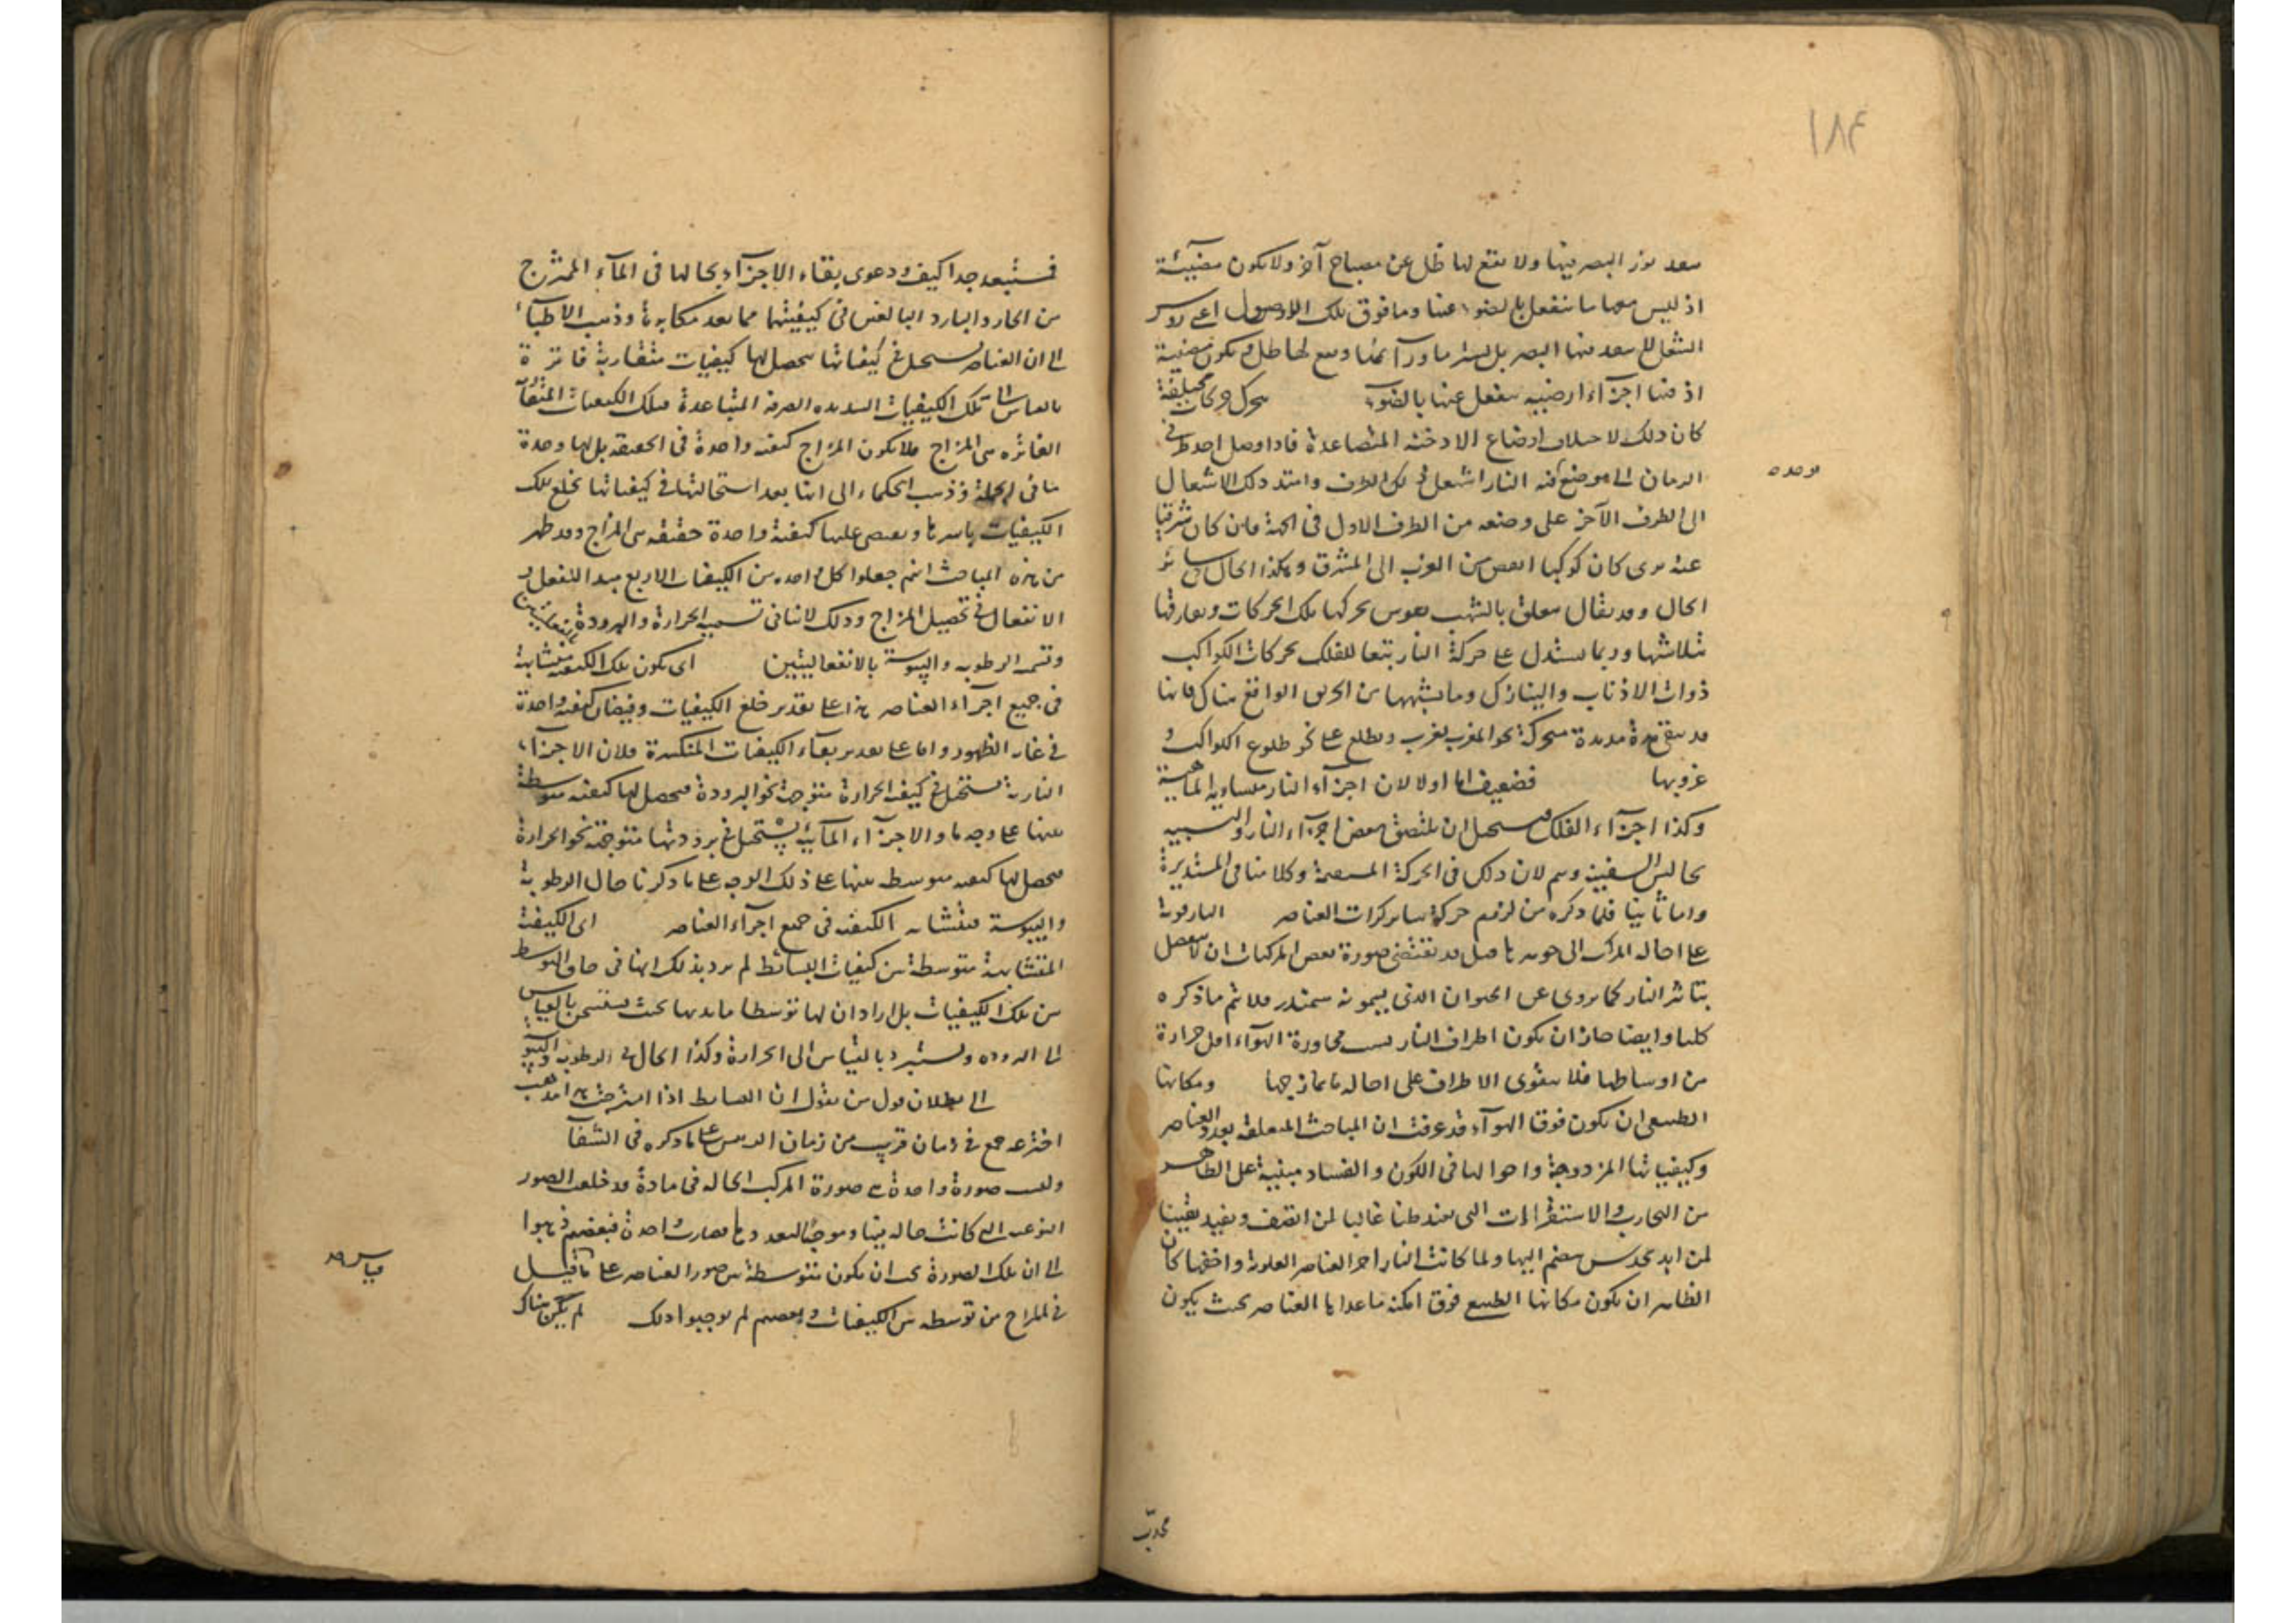 ١٨٤
ينفذ نور البصر فيها ولا يقع لها ظل عن مصباح آخر ولا يكون مضيئة
اذ ليس معها ما ينفعل بالضوء عنا وما فوق تلك الاصول اعنى رؤس
الشعل لا ينفذ فيها البصر بل يستر ما ورآئها ويقع لها ظل ويكون مضيئة
اذ فيها اجزآء ارضية ينفعل عنها بالضوء يتحرك حركات مختلفة
كان ذلك لاختلاف اوضاع الادخنة المتصاعدة فاذا وصل احد طرفى
الدخان الى موضع النار اشتعل ذلك الطرف وامتد ذلك الاشتعال
الى الطرف الآخر على وضعه من الطرف الاول فى الجهة فان كان شرقيا
عنه يرى كان كوكبا انقض من الغرب الى المشرق وهكذا الحال فى سائر
الحال وقد يقال يتعلق بالشهب نفوس يحركها تلك الحركات ويفارقها
بتلاشيها وربما يستدل على حركة النار بتعا للفلك بحركات الكواكب
ذوات الاذناب والنيازك وما يشبهها من الحريق الواقع هناك فانها
قد يبقى مدة مديدة متحركة نحو المغرب يغرب ويطلع على نحو طلوع الكواكب و
غروبها فضعيف اما اولا لان اجزآء النار متساوية الماهية
وكذا اجزآء الفلك فيستحيل ان يلتصق بعض اجزآء النار والتشبيه
بجالس السفينة وهم لان ذلك فى الحركة المستقيمة وكلامنا فى المستديرة
واما ثانيا فلما ذكره من لزوم حركة سائر كرات العناصر النار قوية
على احالة المركب الى جوهرها قيل قد تقتضى صورة بعض المركبات ان لا ينفعل
بتاثر النار كما يروى عن الحيوان الذى يسمونه سمندر فلا يتم ما ذكره
كليا وايضا جاز ان يكون اطراف النار بسبب مجاورة الهوآء اقل حرارة
من اوساطها فلا يقوى الاطراف على احالة ما يمازجها ومكانها
الطبيعى ان يكون فوق الهوآء قد عرفت ان المباحث المتعلقة بعدد العناصر
وكيفياتها المزدوجة واحوالها فى الكون والفساد مبنية على الظاهر
من التجارب والاستقراءات التى يفيد ظنا غالبا لمن انصف ويفيد يقينا
لمن ايد بحدس ينضم اليها ولما كانت النار احر العناصر العلوية واخفها كان
الظاهر ان يكون مكانها الطبيعى فوق امكنة ما عداها العناصر بحيث يكون
محدب
فمستبعد جدا كيف ودعوى بقاء الاجزآء بحالها فى المآء الممتزج
من الحار والبارد البالغين فى كيفيتهما مما يعد مكابرة وذهب الاطبآء
الى ان العناصر يستحيل فى كيفياتها يحصل لها كيفيات متقاربة فاترة
بالقياس الى تلك الكيفيات الشديدة الصرفة المتباعدة فتلك الكيفيات المتقاربة
الفاترة هى المزاج فلا يكون المزاج كيفية واحدة فى الحقيقة بل لها وحدة
ما فى الجملة وذهب الحكماء الى انها بعد استحالتها فى كيفياتها تخلع تلك
الكيفيات باسرها ويفيض عليها كيفية واحدة حقيقة هى المزاج وقد ظهر
من هذه المباحث انهم جعلوا كل واحدة من الكيفيات الاربع مبدا للفعل و
الانفعال فى تحصيل المزاج وذلك لا ينافى تسمية الحرارة والبرودة بالفعليتين
وتسمية الرطوبة واليبوسة بالانفعاليتين اى يكون تلك الكيفية متشابهة
فى جميع اجزآء العناصر هذا على تقدير خلع الكيفيات وفيضان كيفية واحدة
فى غاية الظهور واما على تقدير بقآء الكيفيات المنكسرة فلان الاجزآء
النارية تستحيل فى كيفية الحرارة متوجهة نحو البرودة فيحصل لها كيفية متوسطة
بينها على وجه ما والاجزآء المآئية يستحيل فى برودتها متوجهة نحو الحرارة
فيحصل لها كيفية متوسطة بينها على ذلك الوجه على ما ذكرنا حال الرطوبة
واليبوسة فيتشابه الكيفية فى جميع اجزآء العناصر اى الكيفية
المتشابهة متوسطة بين كيفيات البسائط لم يرد بذلك انها فى حاق الوسط
من تلك الكيفيات بل اراد ان لها توسطا ما بينها بحيث يستسخن بالقياس
الى البرودة ويستبرد بالقياس الى الحرارة وكذا الحال فى الرطوبة واليبوسة
الى بطلان قول من يقول ان البسائط اذا امتزجت هذا مذهب
اخترعه جمع فى زمان قريب من زمان الشيخ على ما ذكره فى الشفآ
ولبست صورة واحدة هى صورة المركب الحالة فى مادة قد خلعت الصور
النوعية التى كانت حالة فيها وموجبة لتعددها فصارت واحدة فبعضهم ذهبوا
الى ان تلك الصورة يجب ان يكون متوسطة بين صور العناصر على ما قيل
فى المزاج من توسطه بين الكيفيات وبعضهم لم يوجبوا ذلك لم يكن هناك